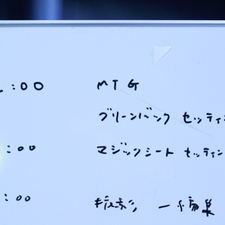 :00 MTG
グリーンバック セッティン
:00 マジックシート セッティン
:00 撮影